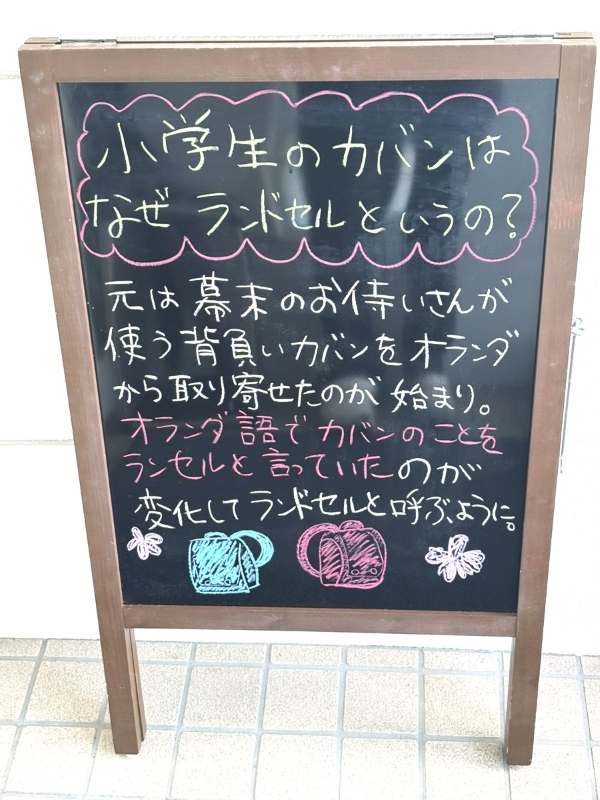 小学生のカバンは
なぜ ランドセルというの?
元は幕末のお侍いさんが
使う背負いカバンをオランダ
から取り寄せたのが始まり。
オランダ語でカバンのことを
ランセルと言っていたのが
変化してランドセルと呼ぶように。